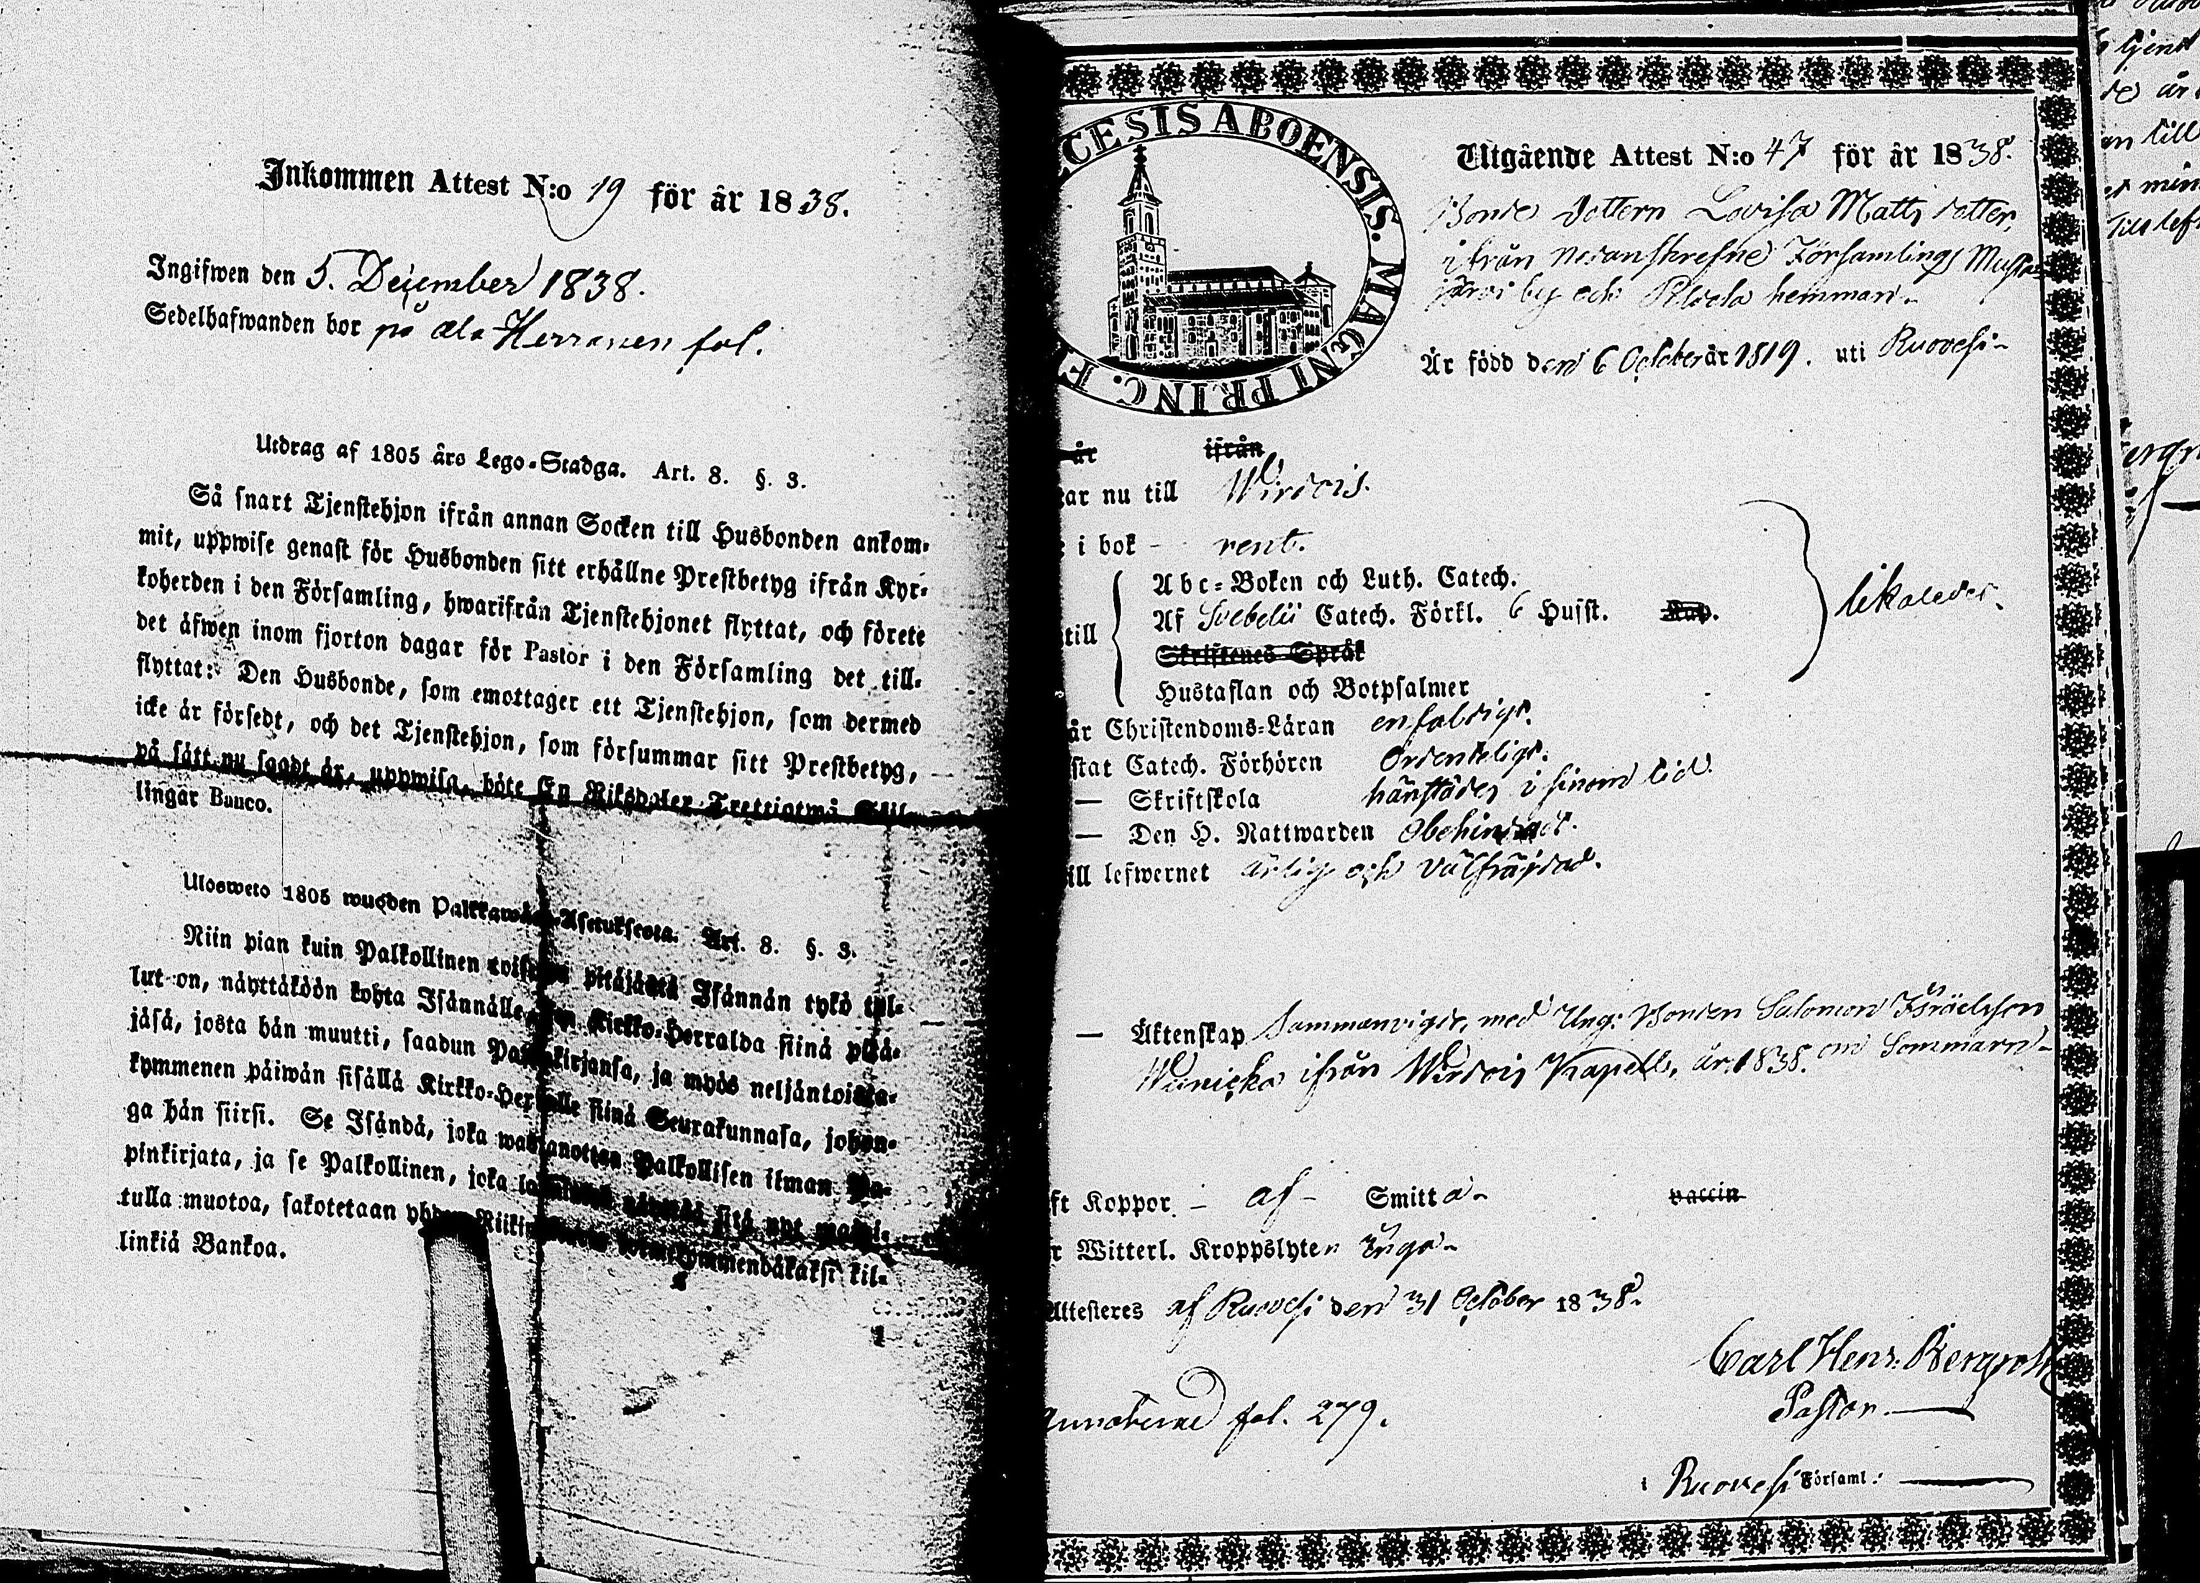 Inkommen Attest N:o 19 för år 1838.
Ingifwen den 5. December 1838.
Sedelhafwanden bor på Ala-Herranen fol.
Utdrag af 1805 års Lego-Stadga. Art. 8. §. 3.
Så snart Tjenstehjon ifrån annan Socken till Husbonden ankom-
mit, uppwise genast för Husbonden sitt erhållne Prestbetyg ifrån Kyr-
koherden i den Församling, hwarifrån Tjenstehjonet flyttat, och förete
det äfwen inom fjorton dagar för Pastor i den Församling det till-
flyttat: Den Husbonde, som emottager ett Tjenstehjon, som dermed
icke är försedt, och det Tjenstehjon, som försummar sitt Prestbetyg,
på sätt nu sagdt är, uppwisa, böte En Riksdaler Trettiotwå Skil-
lingar Banco.
Ulosweto 1805 wuoden Palkkawäen-Asetuksesta. Art. 8. §. 3.
Niin pian kuin Palkollinen toisesta pitäjästä Isännän tykö tul-
lut on, näyttäköön kohta Isännälle Kirkko-Herralda siinä pitä-
jäsä, josta hän muutti, saadun Papinkirjansa, ja myös neljäntoista-
kymmenen päiwän sisällä Kirkko-Herralle siinä Seurakunnasa, johon-
ga hän siirsi. Se Isändä, joka wastanottaa Palkollisen ilman Pa-
pinkirjata, ja se Palkollinen, joka sitä nyt maini-
tulla muotoa, sakotetaan yhden Riikin kolmekymmendäkaksi kil-
linkiä Bankoa.
CESIS ABOENSIS. MAGNI PRINC. F
Utgående Attest N:o 47 för år 1838.
Bonde Dottern Lovisa Matts dotter,
ifrån nedanskrefne Församlings Musta
järvi by och hemman
Är född den 6 October år 1819. uti Ruovesi
år ifrån
ar nu till Wirdois.
i bok rent.
till
Abc-Boken och Luth. Catech.
Af Svebelii Catech. Förkl. 6 Hufst.
Skriftenes Språk
Hustaflan och Botpsalmer
likaledes.
år Christendoms-Läran enfaldigt.
stat Catech. Förhören Ordenteligt.
— Skriftskola i sinom tid
— Den H. Nattwarden Obehindradt.
ill lefwernet ärlig och välfräjdad.
— Äktenskap Sammanvigd, med Ung: Bonden Salomon Isräelsson
ifrån Wirdois Kapell, år 1838. om Sommarn
ft Koppor af Smitta vaccin
r Witterl. Kroppslyten Inga
Attesteres af Ruovesi den 31 October 1838.
Carl Henr: Bergroth
Pastor.
fol. 279.
i Ruovesi Församl: